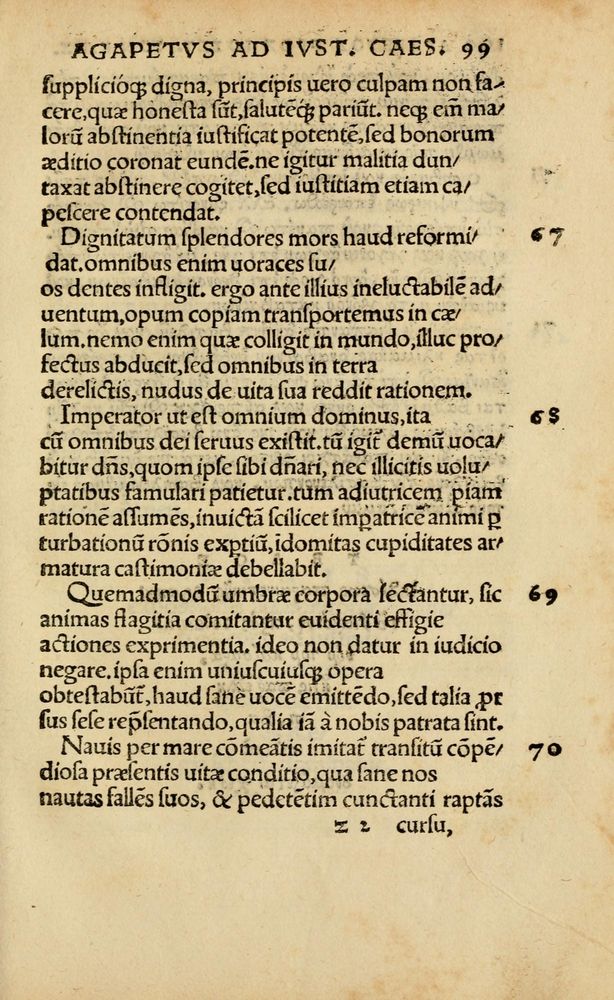 AGAPETVS AD IVST. CAES. 99
ſupplicióq; digna, principis uero culpam non fa/
cere, quæ honeſta ſūt, ſalutēq; pariūt. neq; em̄ ma/
lorū abſtinentia iuſtificat potentē, ſed bonorum
æditio coronat eundē. ne igitur malitia dun/
taxat abſtinere cogitet, ſed iuſtitiam etiam ca/
peſcere contendat.
Dignitatum ſplendores mors haud reformi/ 67
dat. omnibus enim uoraces ſu/
os dentes infligit. ergo ante illius ineluctabilē ad/
uentum, opum copiam tranſportemus in cæ/
lum. nemo enim quæ colligit in mundo, illuc pro/
fectus abducit, ſed omnibus in terra
derelictis, nudus de uita ſua reddit rationem.
Imperator ut eſt omnium dominus, ita 68
cū omnibus dei ſeruus exiſtit. tū igit̄ demū uoca/
bitur dn̄s, quom ipſe ſibi dn̄ari, nec illicitis uolu/
ptatibus famulari patietur. tum adiutricem piam
rationē aſſumēs, inuictā ſcilicet imꝑatricē animi ꝑ
turbationū rōnis exptiū, īdomitas cupiditates ar/
matura caſtimoniæ debellabit.
Quemadmodū umbræ corpora ſectantur, ſic 69
animas flagitia comitantur euidenti effigie
actiones exprimentia. ideo non datur in iudicio
negare. ipſa enim uniuſcuiuſq; opera
obteſtabūt̄, haud ſanè uocē emittēdo, ſed talia ꝓr
ſus ſeſe rep̄ſentando, qualia iā à nobis patrata ſint.
Nauis per mare cōmeātis imitat̄ tranſitū cōpē/ 70
dioſa præſentis uitæ conditio, qua ſane nos
nautas fallēs ſuos, & pedetētim cunctanti raptās
z 2 curſu,